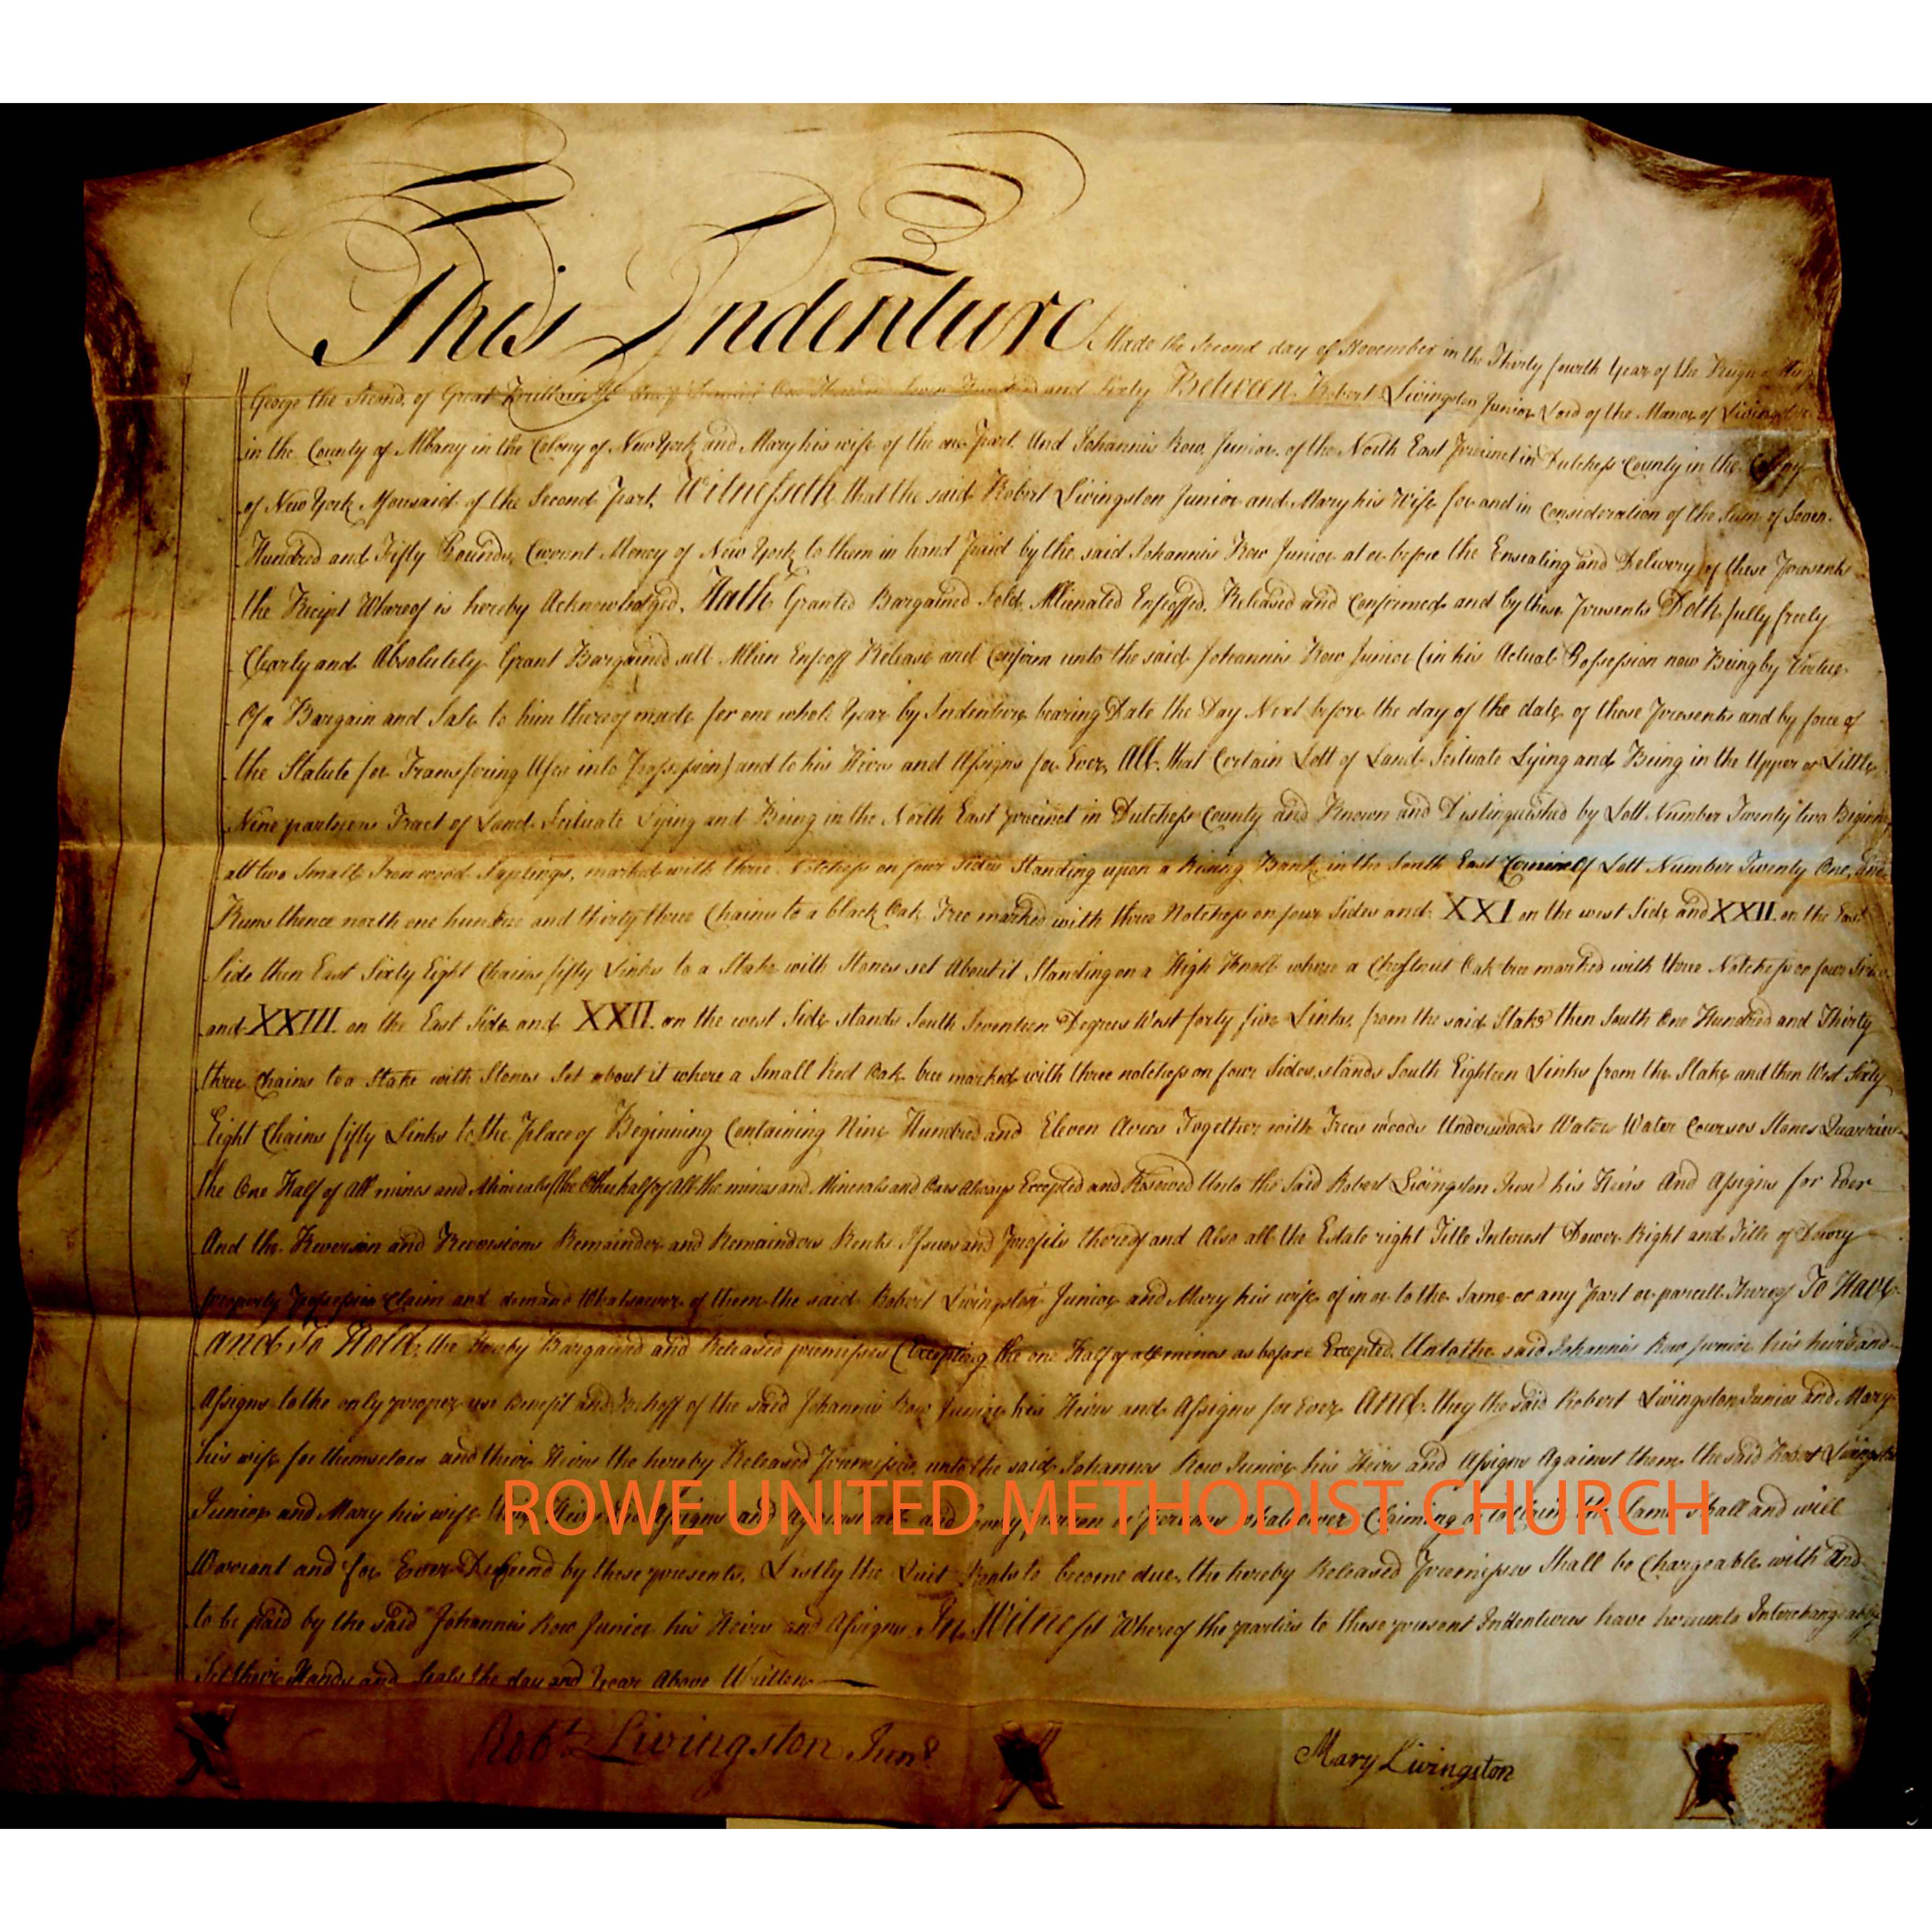 This Indenture Made the Second day of November in the Thirty fourth Year of the Reign King
George the Second, of Great Brittain &c One Thousand Seven Hundred and Sixty Between Robert Livingston Junior Lord of the Manor of Livingston
in the County of Albany in the Colony of New York and Mary his wife of the one part. And Johannis Row Junior of the North East Precinct in Dutchess County in the Colony
of New York Aforesaid of the Second Part, Witnesseth that the said Robert Livingston Junior and Mary his Wife for and in Consideration of the Sum of Seven
Hundred and Fifty Pounds, Current Money of New York to them in hand Paid by the said Johannis Row Junior at or before the Ensealing and Delivery of these Presents
the Receipt Whereof is hereby Acknowledged, Hath Granted Bargained Sold, Alienated Enfeoffed, Released and Confirmed and by these Presents Doth fully freely
Clearly and Absolutely Grant Bargained sell Alien Enfeoff Release and Confirm unto the said Johannis Row Junior (in his Actual Possession now Being by Virtue
Of a Bargain and Sale to him thereof made for one whole Year by Indenture bearing Date the Day Next before the day of the date of these Presents and by force of
the Statute for Transfering Uses into Possession) and to his Heirs and Assigns for Ever, All that Certain Lott of Land Scituate Lying and Being in the Upper or Little
Nine partners Tract of Land Scituate Lying and Being in the North East precinct in Dutchess County and Known and Distinguished by Lott Number Twenty two Begining
att two Small Iron wood Saplings, marked with three Notchess on four Sides Standing upon a Rising Bank in the South East Corner Of Lott Number Twenty One, and
Runs thence north one hundred and thirty three Chains to a black Oak Tree marked with three Notchess on four Sides and XXI on the west Side and XXII on the East
Side then East Sixty Eight Chains fifty Links to a Stake with Stones set About it Standing on a High Knoll where a Chesstnut Oak tree marked with three Notchess on four Sides
and XXIII on the East Side and XXII on the west Side stands South Seventeen Degrees West forty five Links from the said Stake then South One Hundred and Thirty
three Chains to a Stake with Stones Set about it where a Small Red Oak tree marked with three notchess on four Sides, stands South Eighteen Links from the Stake and then West Sixty
Eight Chains fifty Links to the Place of Beginning Containing Nine Hundred and Eleven Acres Together with Trees woods Underwoods Water Water Courses Stones Quarries
The One Half of All mines and Minerals (the Other half of All the mines and Minerals and Oars Always Excepted and Reserved Unto the Said Robert Livingston Junr his Heirs And Assigns for Ever
And the Reversion and Reversions Remainder and Remainders Rents Issues and Profits thereof and Also all the Estate right Title Interest Dower Right and Title of Dowry
property Possession Claim and demand Whatsoever of them the said Robert Livingston Junior and Mary his wife of in or to the Same or any Part or parcell Thereof To Have
and to Hold, the Hereby Bargained and Released premisses (Excepting the one Half of all mines as before Excepted, Unto the said Johannis Row Junior his heirs and
Assigns to the only proper use Benefit and Behoff of the said Johannis Row Junior his Heirs and Assigns for Ever And they the said Robert Livingston Junior And Mary
his wife for themselves and their Heirs the hereby Released Premisses, unto the said Johannes Row Junior his Heirs and Assigns Against them the said Robert Livingston
Junior and Mary his wife Heirs Assigns and Against all and Every person or persons whatsoever Claiming or to Claim the Same Shall and will
Warrant and for Ever Deffend by these presents, Lastly the Quit Rents to become due, the hereby Released Premisses Shall be Chargeable with And
to be paid by the said Johannis Row Junior his Heirs and Assigns In Witness Whereof the parties to these present Indentures have hereunto Interchangeably
Set their Hands and Seals the day and Year Above Written
Robt Livingston Junr
Mary Livingston
ROWE UNITED METHODIST CHURCH